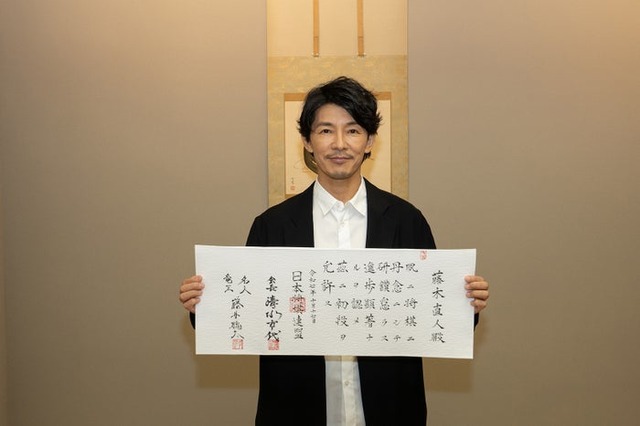 藤木直人殿
夙ニ将棋ニ
丹念ニシテ
研鑚怠ラス
進歩顕著ナ
ルヲ認メ
茲ニ初段ヲ
允許ス
令和七年十月
日本将棋連盟
会長 清水市代
名人
竜王 藤井聡太